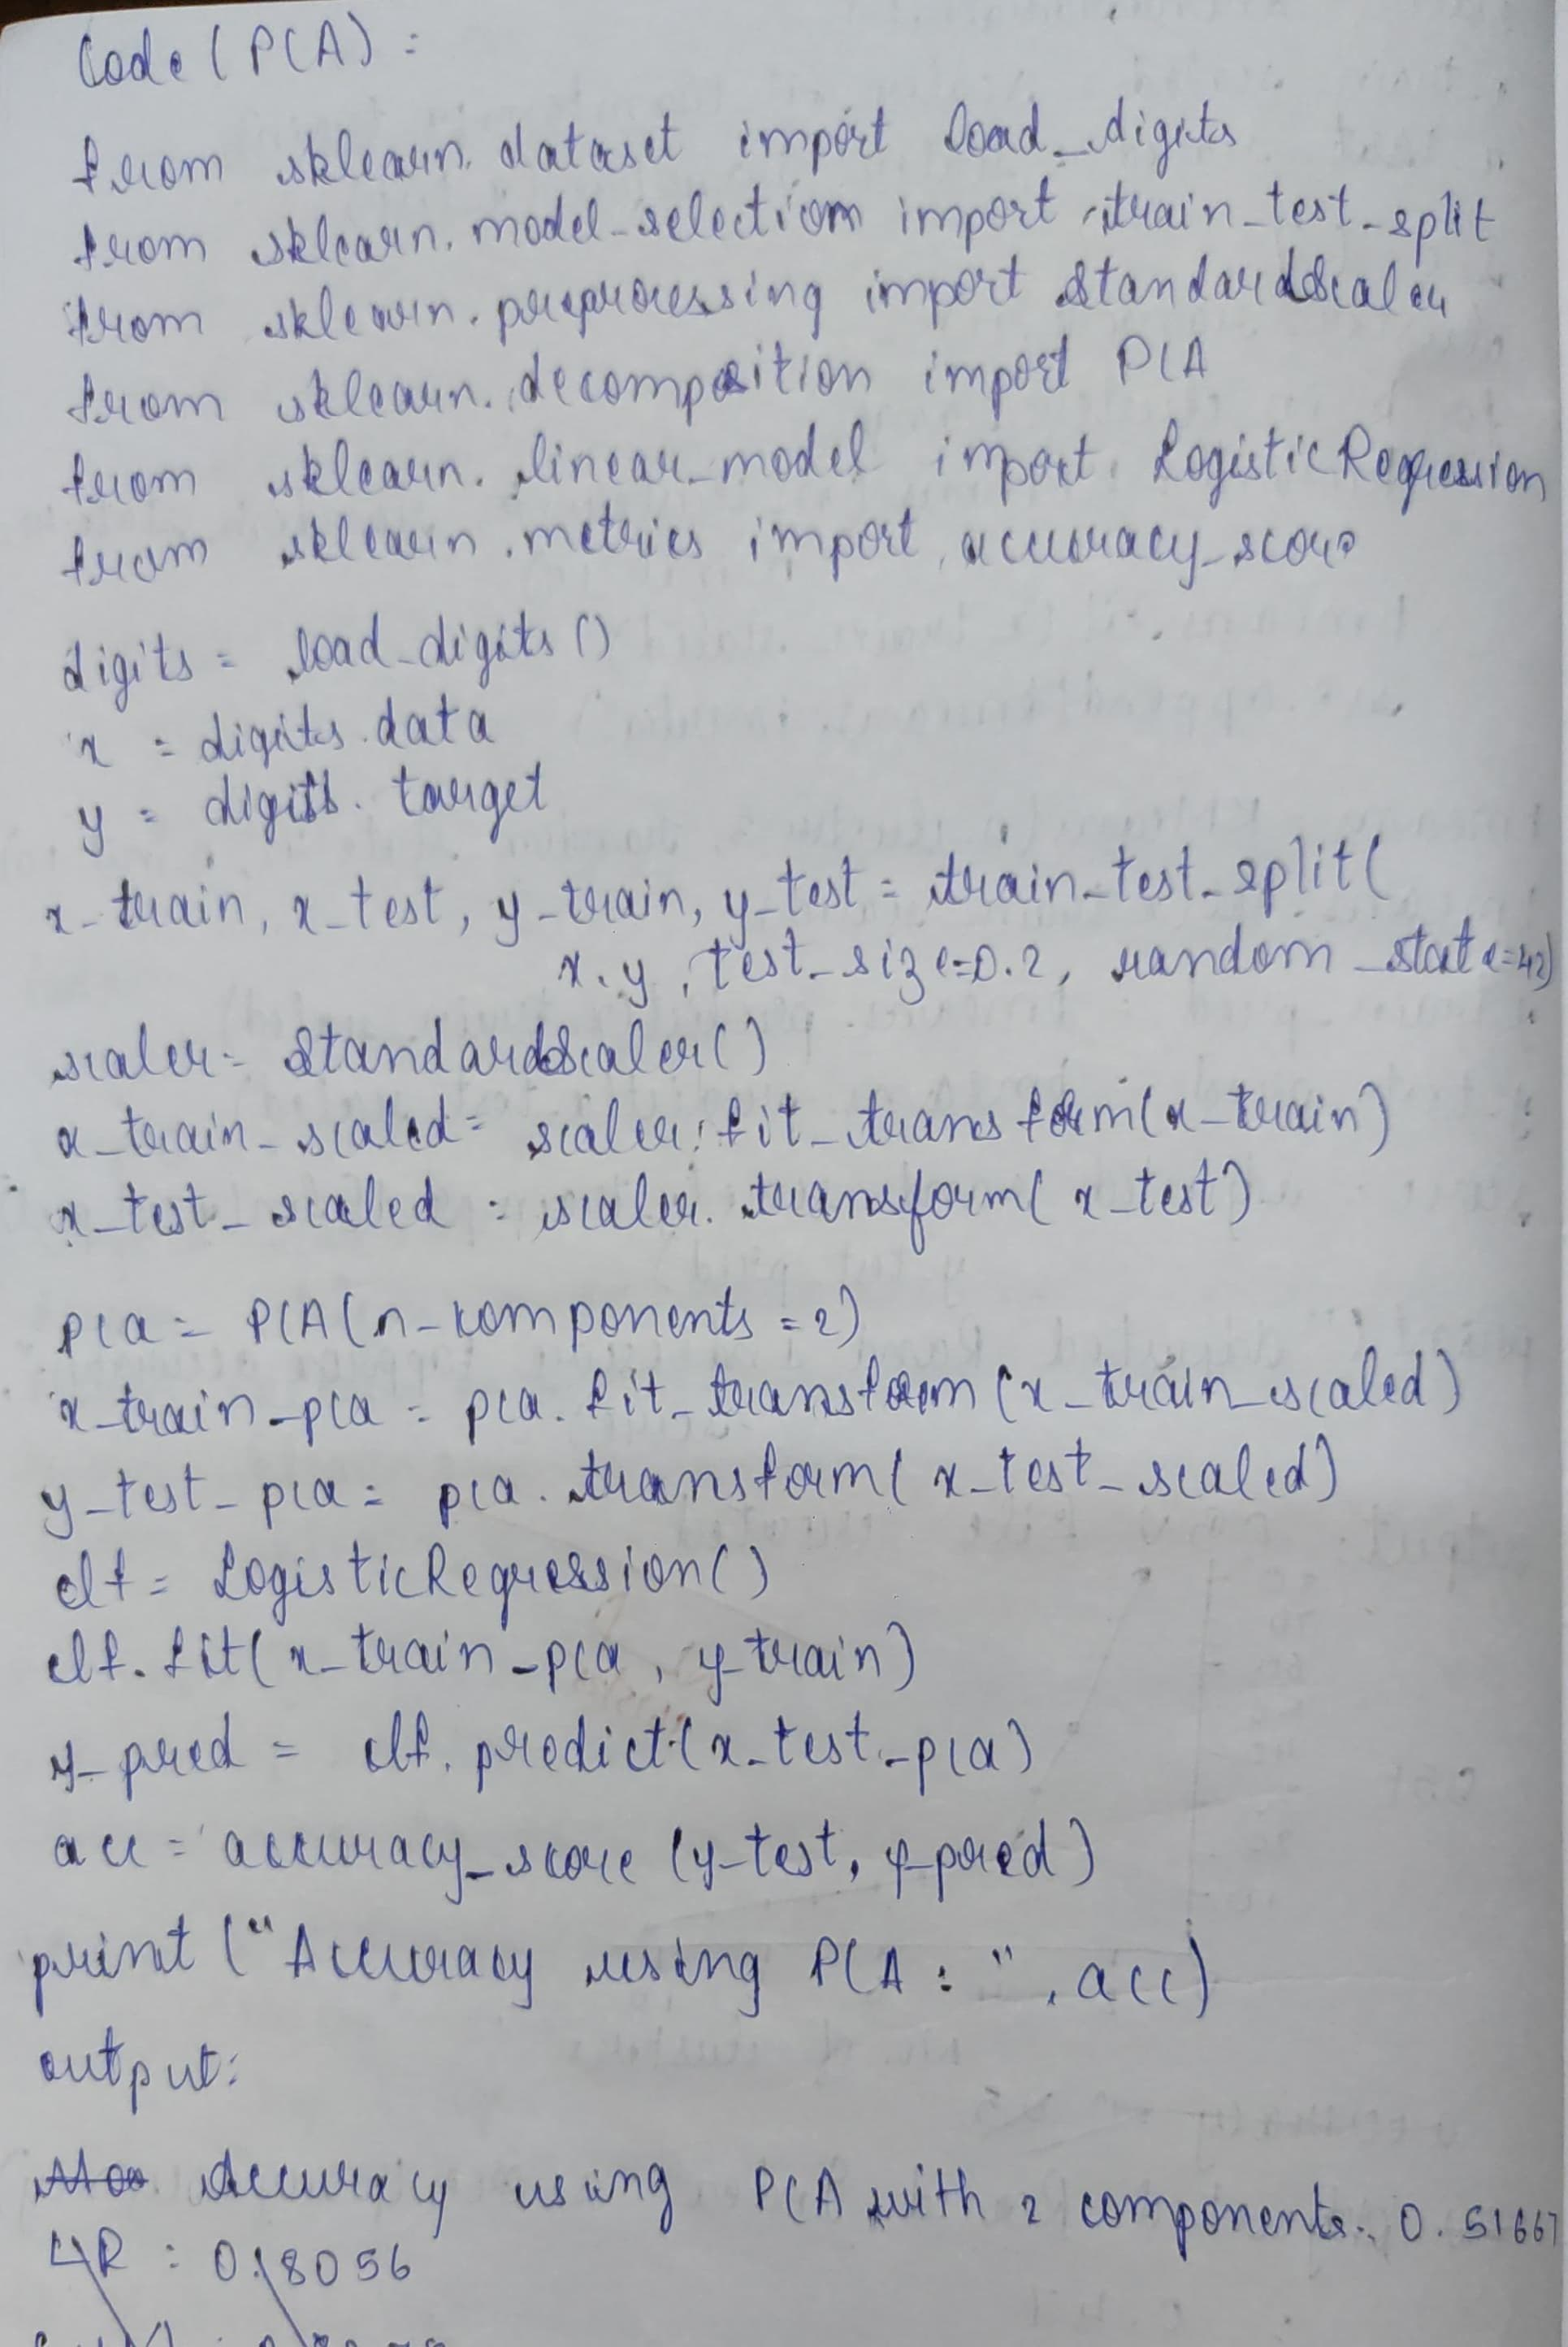 Code (PCA) :
from sklearn. dataset import load_digits
from sklearn. model_selection import train_test_split
from sklearn. preprocessing import StandardScaler
from sklearn. decomposition import PCA
from sklearn. linear_model import LogisticRegression
from sklearn .metrics import accuracy_score
digits = load_digits ()
x = digits. data
y = digits. target
x_train, x_test, y_train, y_test = train_test_split(
x, y, test_size=0.2, random_state=42)
scaler = StandardScaler()
x_train_scaled = scaler. fit_transform(x_train)
x_test_scaled = scaler. transform( x_test)
pca = PCA(n_components =2)
x_train_pca = pca. fit_transform (x_train_scaled)
y_test_pca = pca. transform( x_test_scaled)
clf = LogisticRegression()
clf. fit( x_train_pca , y_train)
y_pred = clf. predict(x_test_pca)
acc = accuracy_score (y_test, y_pred)
print ("Accuracy using PCA : " , acc)
output:
Accuracy using PCA with 2 components: 0.51667
LR : 0.18056